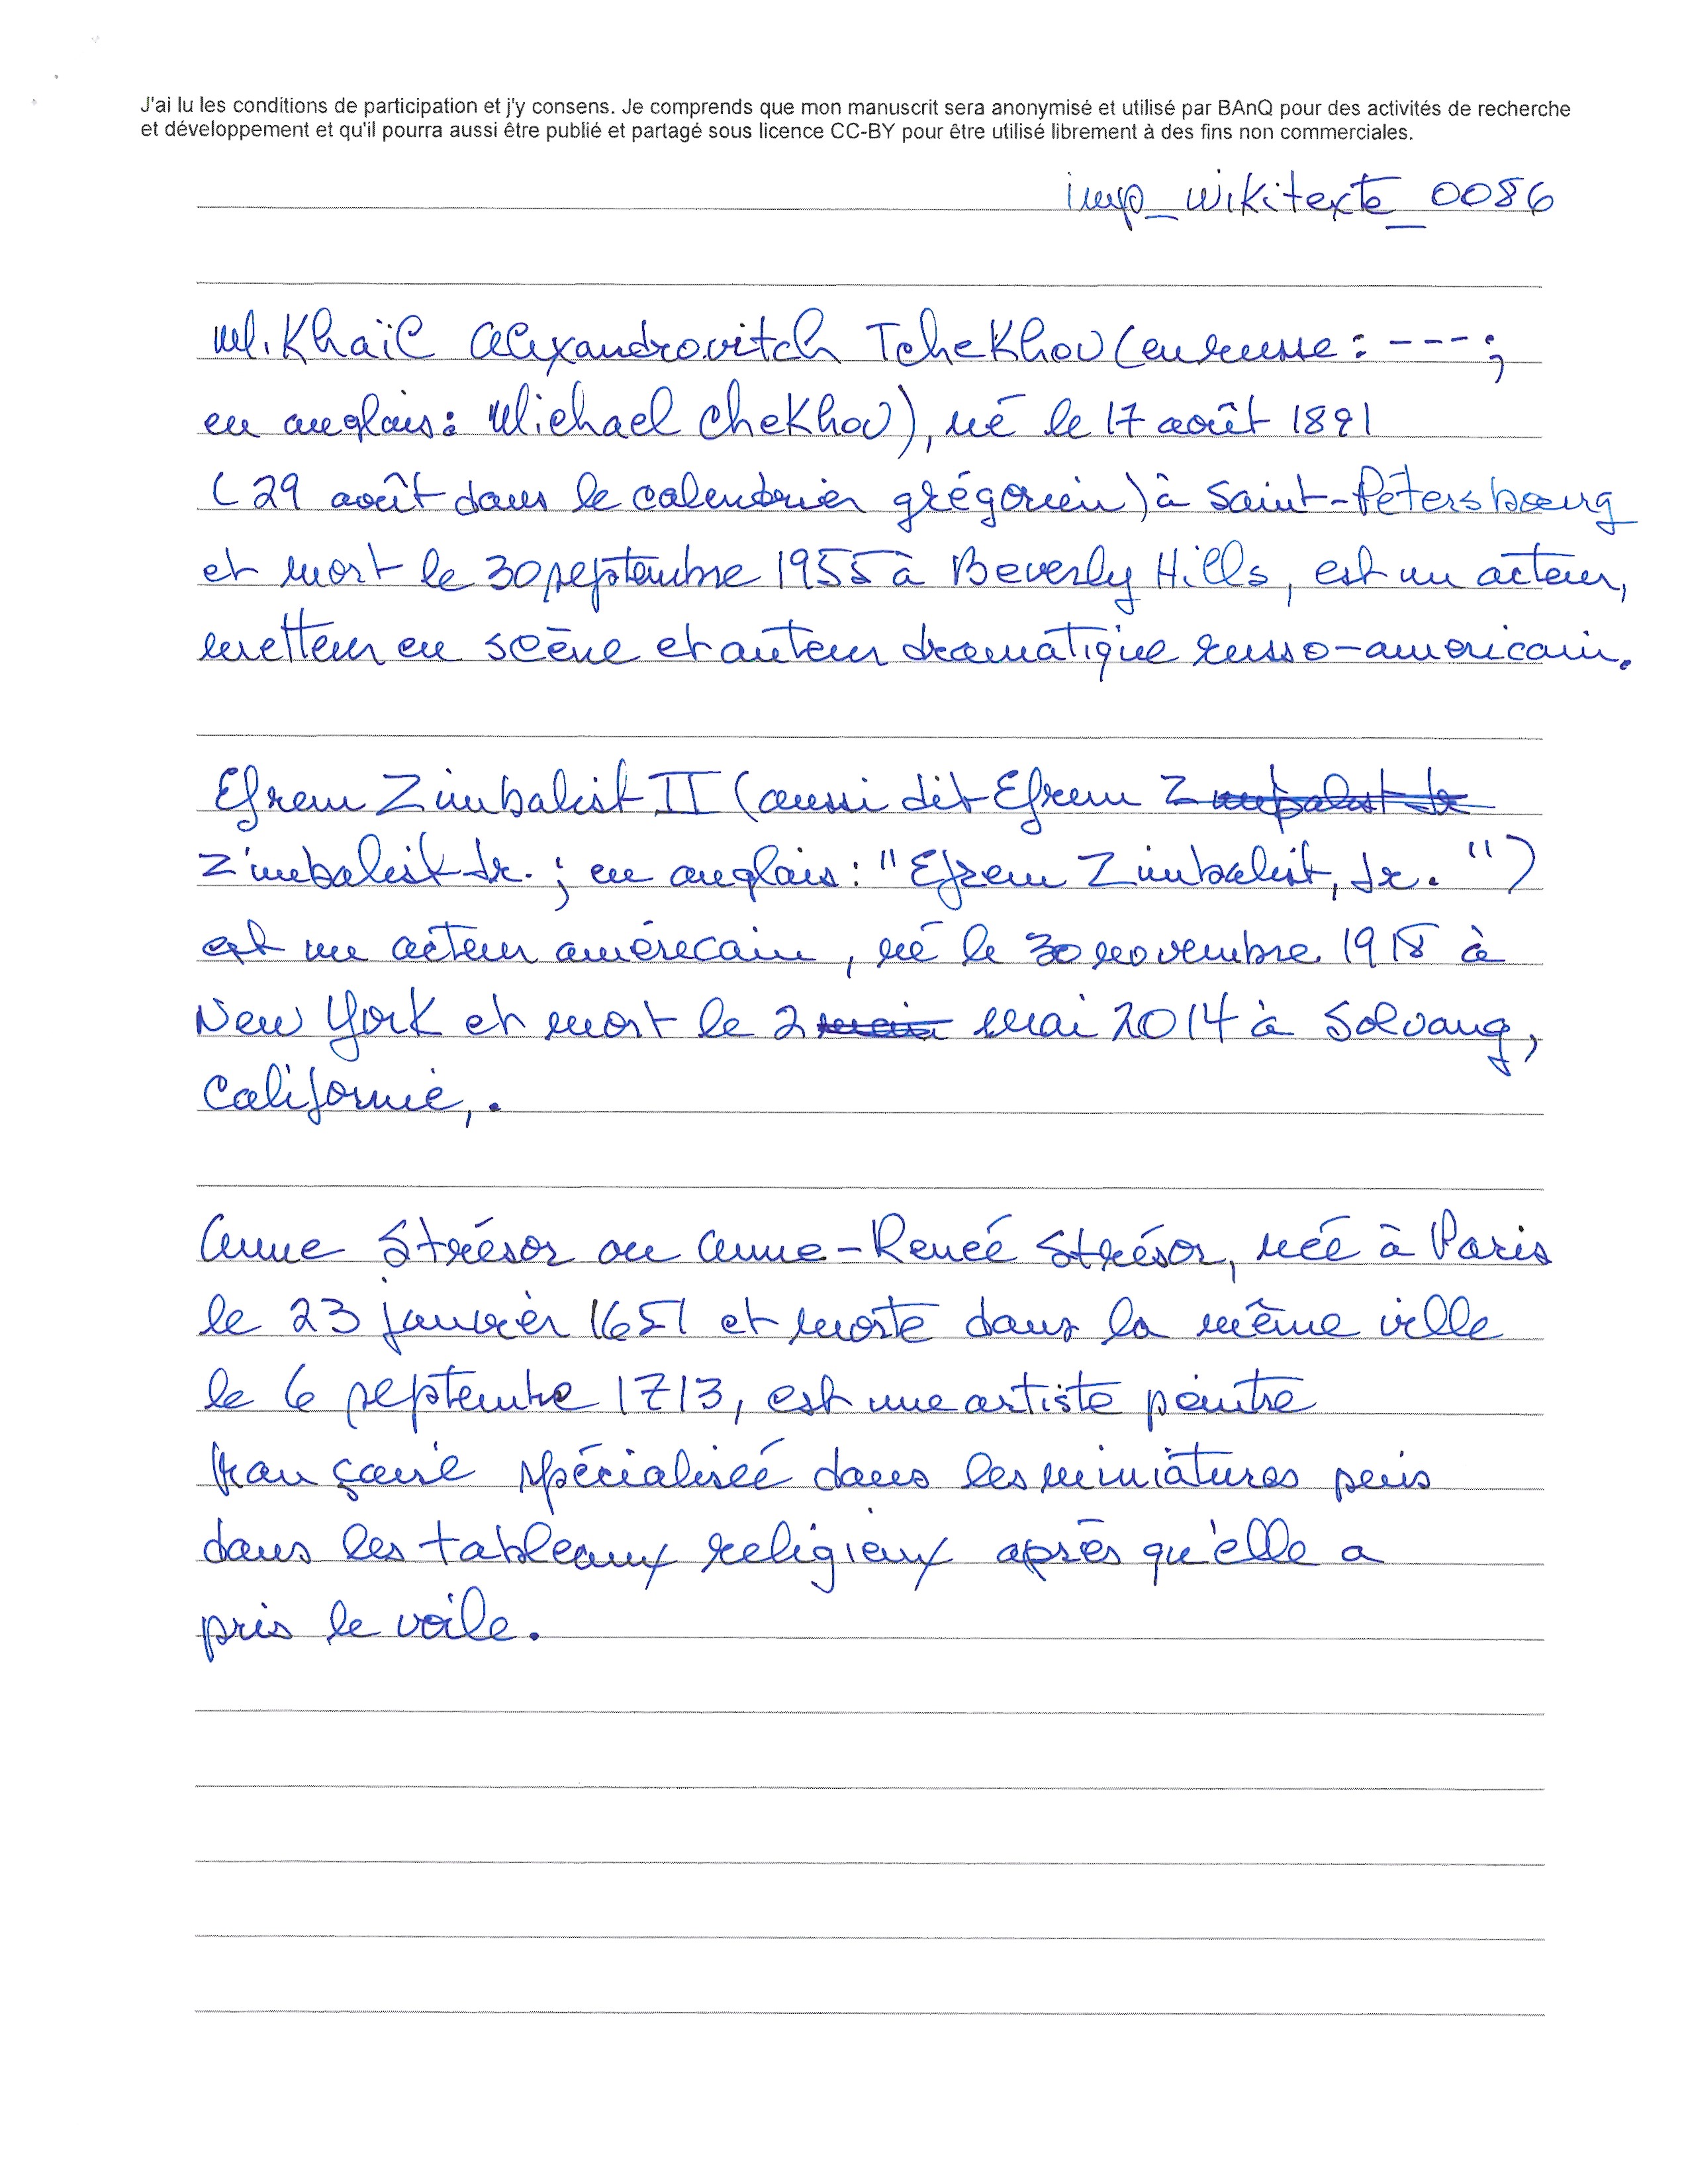 J'ai lu les conditions de participation et j'y consens. Je comprends que mon manuscrit sera anonymisé et utilisé par BAnQ pour des activités de recherche
et développement et qu'il pourra aussi être publié et partagé sous licence CC-BY pour être utilisé librement à des fins non commerciales.
imp_wikitexte_0086
Mikhaïl Alexandrovitch Tchekhov (en russe : ---;
en anglais : Michael Chekhov), né le 17 août 1891
(29 août dans le calendrier grégorien) à Saint-Pétersbourg
et mort le 30 septembre 1955 à Beverly Hills, est un acteur,
metteur en scène et auteur dramatique russo-americain.
Efrem Zimbalist II (aussi dit Efrem Z
Zimbalist Jr. ; en anglais : "Efrem Zimbalist, Jr. ")
est un acteur amérecain, né le 30 novembre 1918 à
New York et mort le 2 mai 2014 à Solvang,
Californie,.
Anne Strésor ou Anne-Renée Strésor, née à Paris
le 23 janvier 1651 et morte dans la même ville
le 6 septembre 1713, est une artiste peintre
française spécialisée dans les miniatures puis
dans les tableaux religieux après qu'elle a
pris le voile.